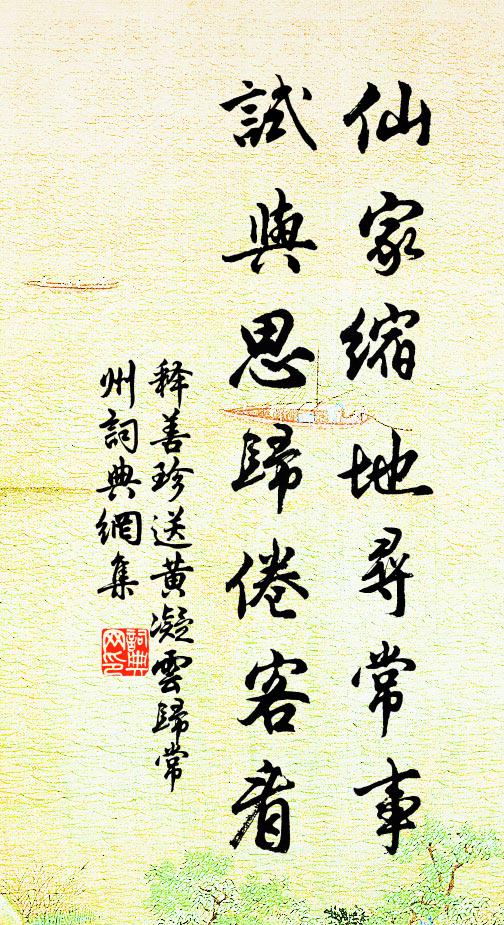 仙家縮地尋常事
試與思歸倦客看
释善珍送黄凝雲歸常
州詞典網集
詞典
网印